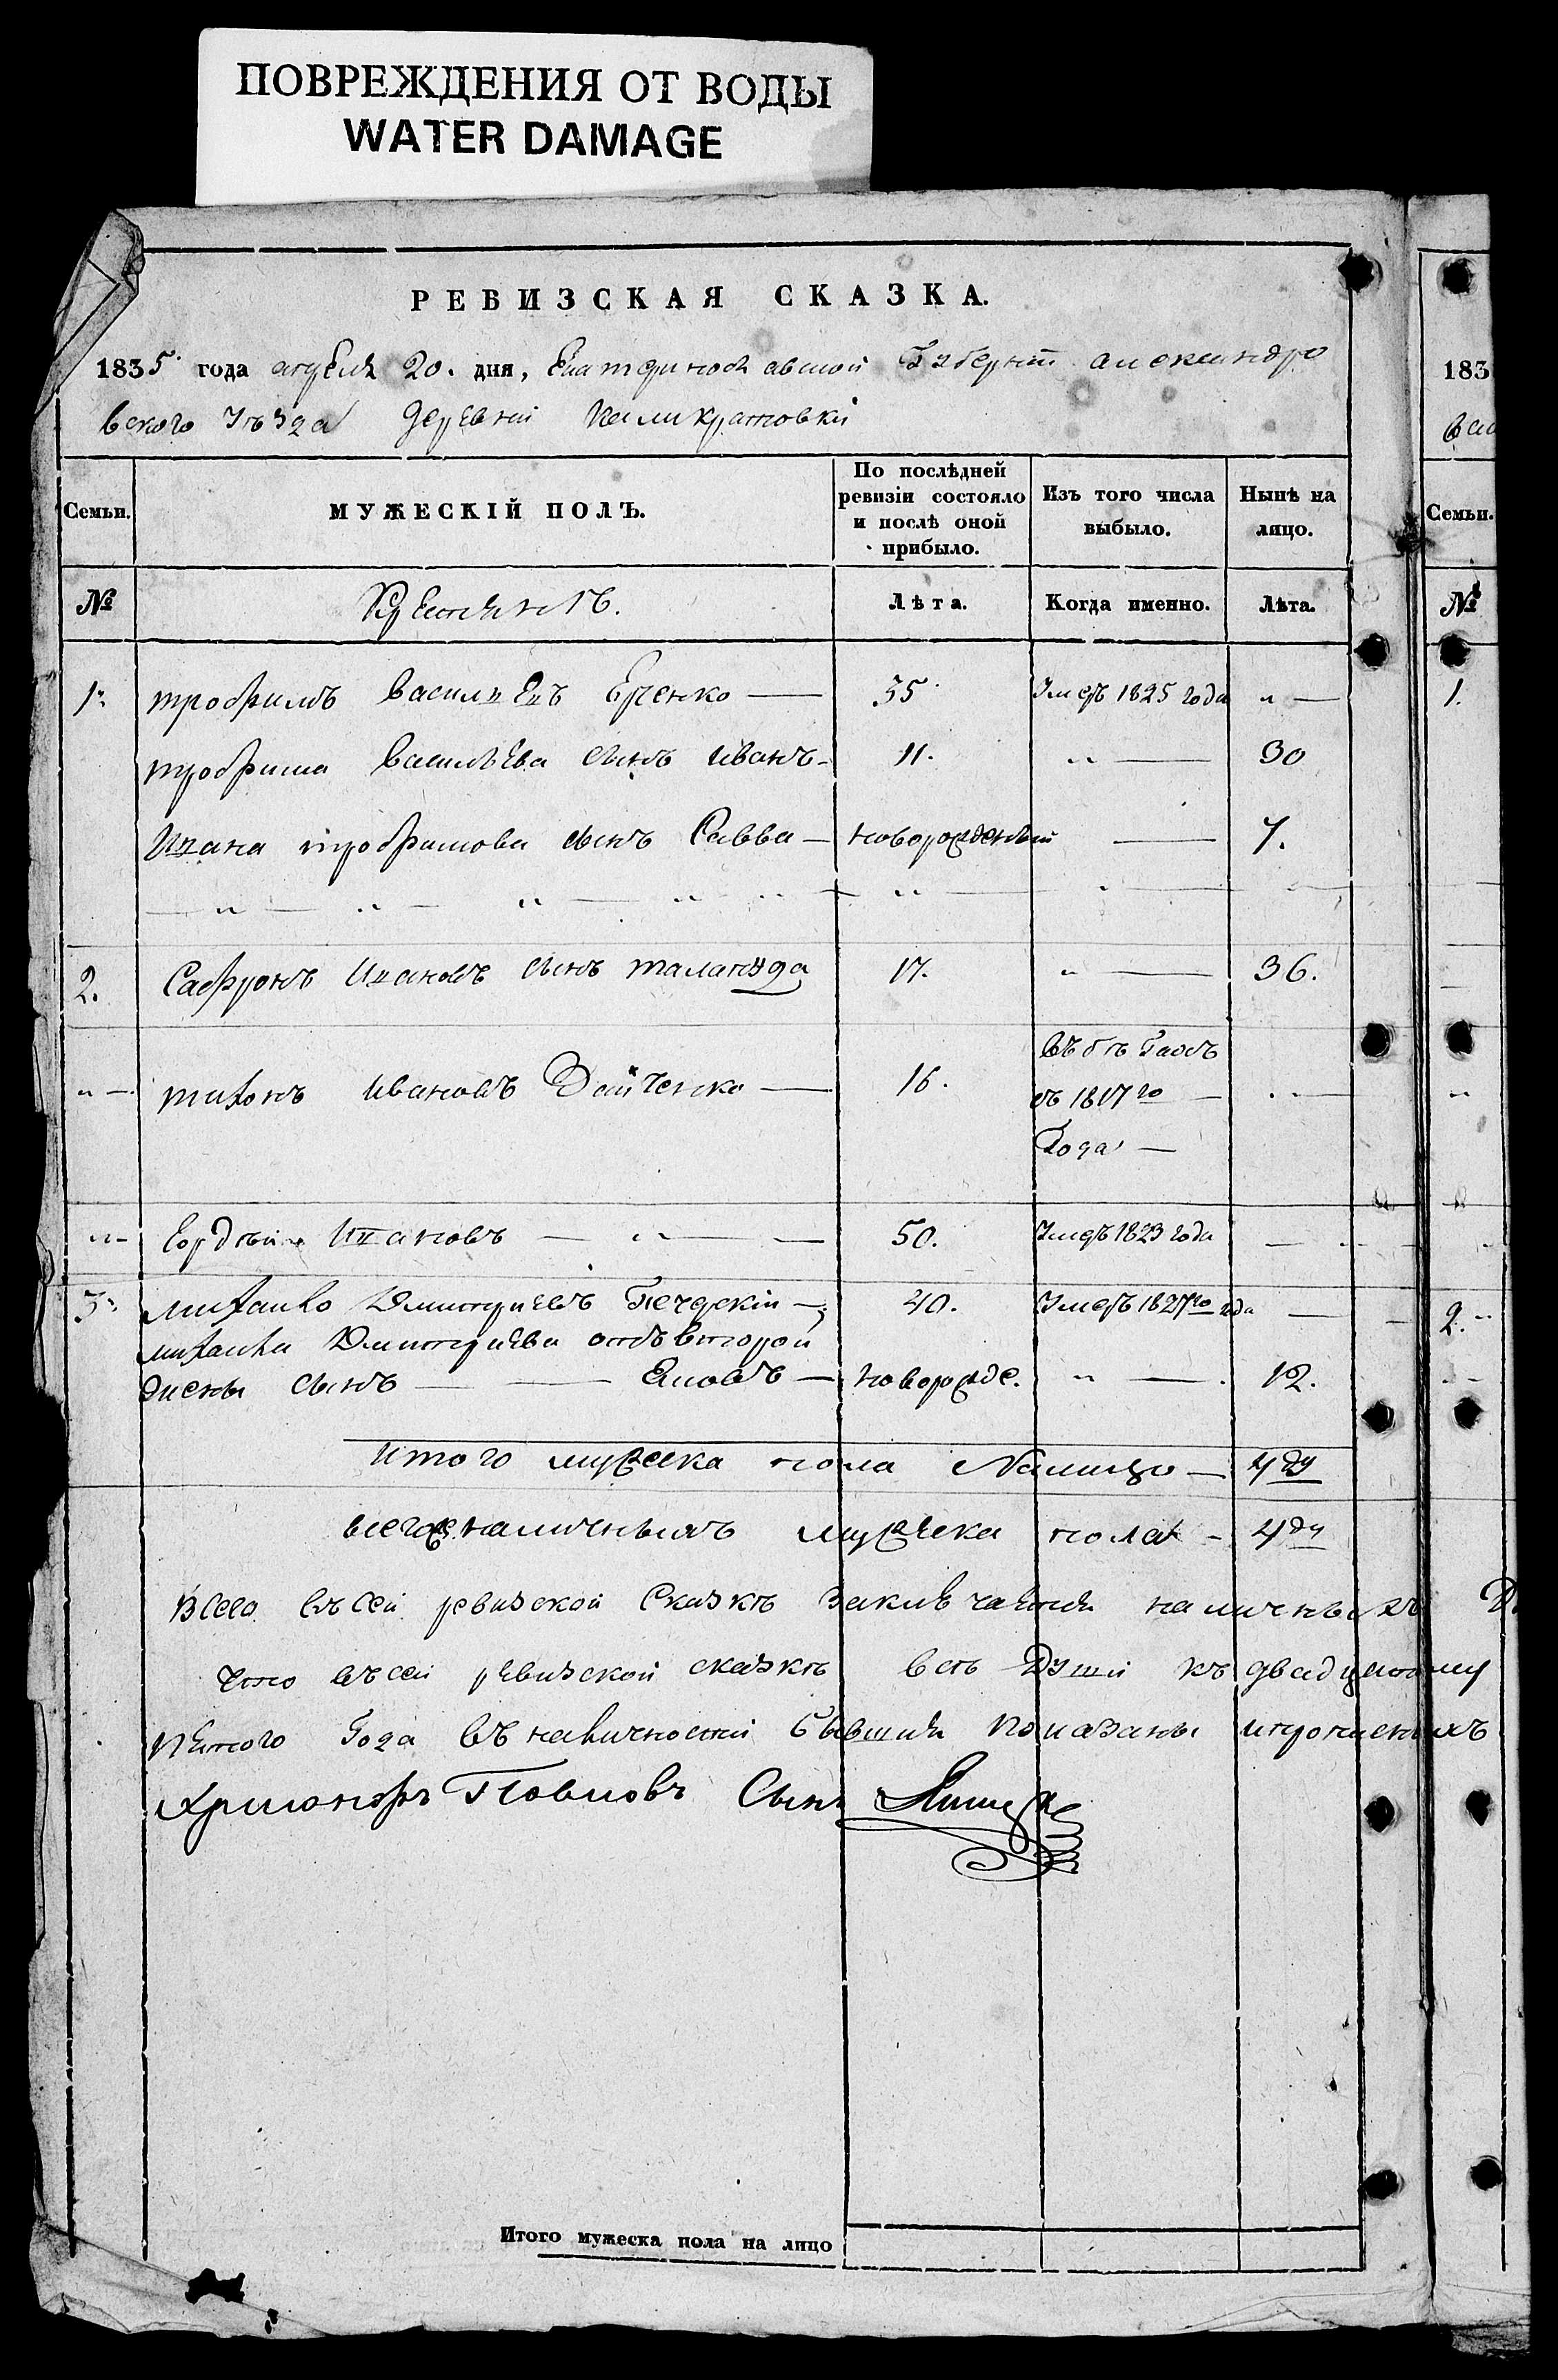 ПОВРЕЖДЕНИЯ ОТ ВОДЫ
WATER DAMAGE
РЕВИЗСКАЯ СКАЗКА.
1835 года апреля 20. дня, Екатеринославской Губернии александро
вского Уъзда деревни Поликратовки
Семьи. МУЖЕСКІЙ ПОЛЪ. По послѣдней ревизіи состояло и послѣ оной прибыло. Изъ того числа выбыло. Нынѣ на лицо.
№ Крестянъ. Лѣта. Когда именно. Лѣта.
1. трофимъ Васильевъ Еренко — 35 Умеръ 1825 года " —
трофима Васильева сынъ иванъ - 11. " — 30
Ивана трофимова сынъ Савва — новорожденный — 7.
2. Сафронъ Ивановъ сынъ 17. " — 36.
" — тихонъ ивановъ — 16. въ бегахъ
съ 1817го — " —
Года —
" — Гордѣй Ивановъ — " — 50. Умеръ 1823 года —
3. михайло Дмитриевъ — 40. Умеръ 1827го года —
михайла Дмитриева отъ второй
жены сынъ — Яковъ — новорожде. " — 12.
итого мужеска пола Налицо — 4 ду
всего наличныхъ мужеска пола - 4 ду
Всего въ сей ревизской Сказкѣ заключается наличныхъ
Что въ сей ревизской сказкѣ все Души къ двадцатому
пятого Года въ наличности бывшия показаны
Павловъ Сынъ
Итого мужеска пола на лицо
183
Семьи.
№
1.
2.